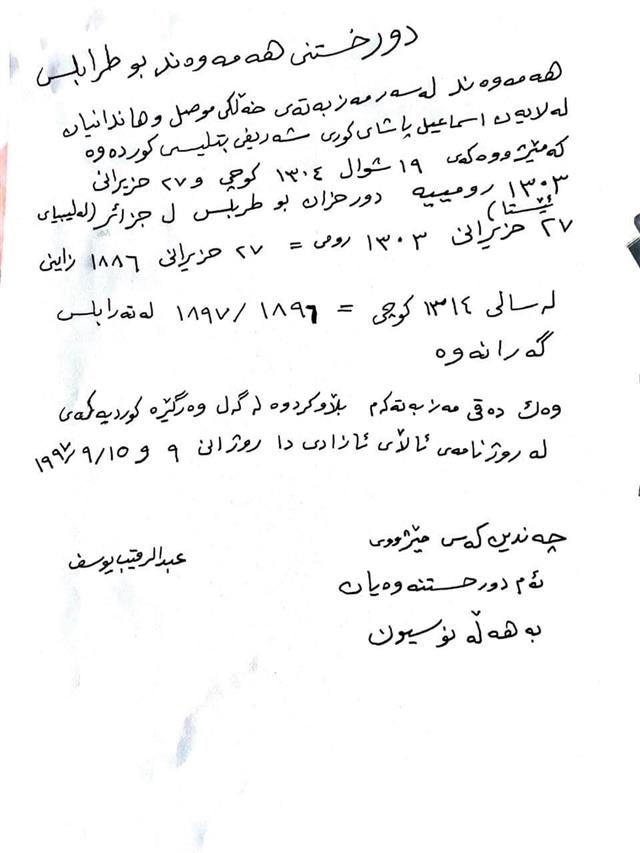 دورخستنی هەمەوەند بو طرابلس
هەمەوەند لەسەر مەزبەتەی خەڵکی موصل وهاندانیان
لەلایەن اسماعیل پاشای کوری شەریفی بتلیسی کوردەوە
کەمێژووەکەی ١٩ شوال ١٣٠٤ کوچی و ٢٧ حزیرانی
١٣٠٣ رومییە دورخران بو طربلس ل جزائر (لەلیبیای
ئێستا)
٢٧ حزیرانی ١٣٠٣ رومی = ٢٧ حزیرانی ١٨٨٦ زاینی
لەسالی ١٣١٤ کوچی = ١٨٩٦/١٨٩٧ لەتەرابلس
گەرانەوە
وەک دەقی مەزبەتەکەم بڵاوکردوە لەگەل وەرگێرە کوردیەکەی
لە روژنامەی ئاڵای ئازادی دا روژانی ٩ و ٩/١٥/١٩٩٧
چەندین کەس مێژووی
ئەم دورخستنەوەیان
بە هەڵە نوسیون
عبدالرقیب یوسف